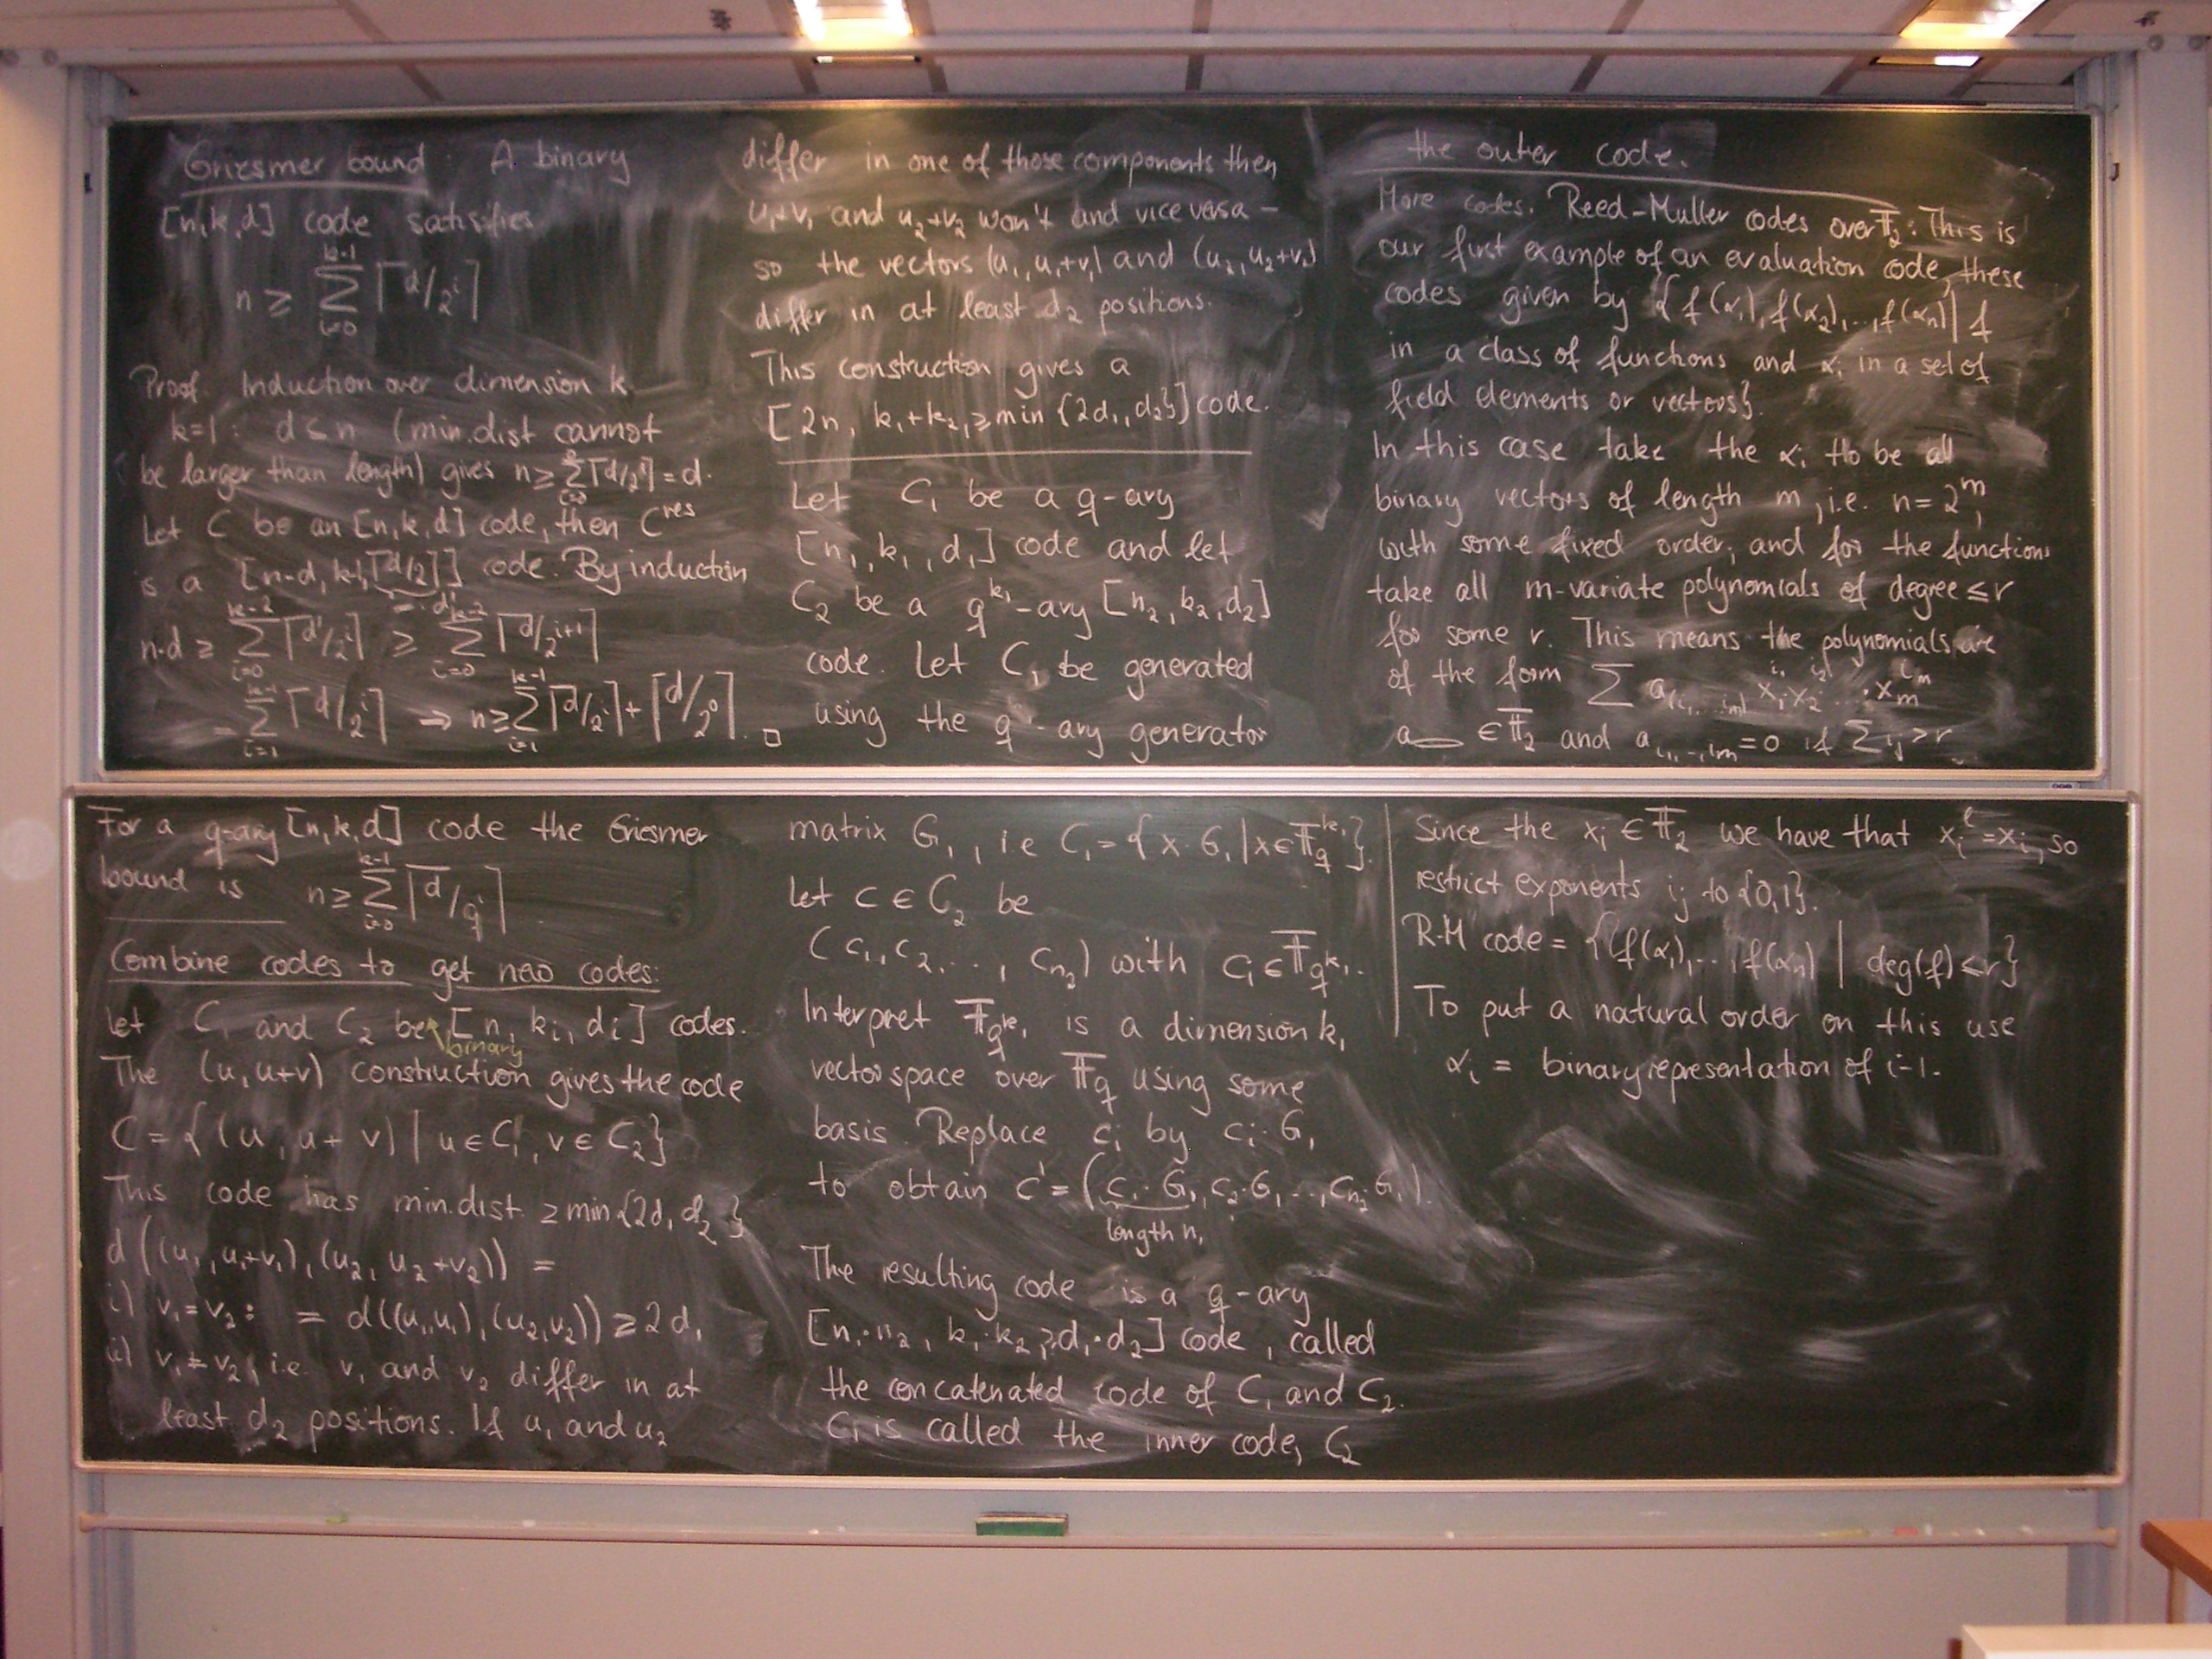 Griesmer bound: A binary
[n,k,d] code satisfies
n ≥ \sum_{i=0}^{k-1} ⌈d/2^i⌉
Proof. Induction over dimension k.
k=1: d≤n (min.dist cannot
be larger than length) gives n ≥ \sum_{i=0}^{0} ⌈d/2^i⌉ = d.
Let C be an [n,k,d] code, then C^{res}
is a [n-d, k-1, ⌈d/2⌉] code. By induction
= d'
n-d ≥ \sum_{i=0}^{k-2} ⌈d'/2^i⌉ ≥ \sum_{i=0}^{k-2} ⌈d/2^{i+1}⌉
= \sum_{i=1}^{k-1} ⌈d/2^i⌉ → n ≥ \sum_{i=1}^{k-1} ⌈d/2^i⌉ + ⌈d/2^0⌉. □
For a q-ary [n,k,d] code the Griesmer
bound is n ≥ \sum_{i=0}^{k-1} ⌈d/q^i⌉
Combine codes to get new codes:
let C_1 and C_2 be [n, k_i, d_i] codes.
binary
The (u,u+v) construction gives the code
C = {(u, u+v) | u∈C_1, v∈C_2}
This code has min.dist. ≥ min{2d_1, d_2}
d((u_1,u_1+v_1),(u_2,u_2+v_2)) =
i) v_1=v_2: = d((u_1,u_1),(u_2,u_2)) ≥ 2d_1
ii) v_1≠v_2, i.e. v_1 and v_2 differ in at
least d_2 positions. If u_1 and u_2
differ in one of those components then
u_1+v_1 and u_2+v_2 won't and vice versa –
so the vectors (u_1,u_1+v_1) and (u_2,u_2+v_2)
differ in at least d_2 positions.
This construction gives a
[2n, k_1+k_2, ≥min{2d_1,d_2}] code.
Let C_1 be a q-ary
[n_1,k_1,d_1] code and let
C_2 be a q^{k_1}-ary [n_2,k_2,d_2]
code. Let C_1 be generated
using the q-ary generator
matrix G_1, i.e C_1={x·G_1|x∈𝔽_q^{k_1}}.
Let c∈C_2 be
(c_1,c_2,..., c_{n_2}) with c_i∈𝔽_{q^{k_1}}.
Interpret 𝔽_{q^{k_1}} is a dimension k_1
vectorspace over 𝔽_q using some
basis. Replace c_i by c_i·G_1
to obtain c'=(c_1·G_1,c_2·G_1,..,c_{n_2}·G_1).
length n_1
The resulting code is a q-ary
[n_1·n_2, k_1·k_2, ≥d_1·d_2] code, called
the concatenated code of C_1 and C_2.
C_1 is called the inner code, C_2
the outer code.
More codes. Reed-Muller codes over 𝔽_2: This is
our first example of an evaluation code, these
codes given by {f(α_1),f(α_2),..,f(α_n)| f
in a class of functions and α_i in a set of
field elements or vectors}.
In this case take the α_i to be all
binary vectors of length m, i.e. n=2^m,
with some fixed order, and for the functions
take all m-variate polynomials of degree ≤r
for some r. This means the polynomials are
of the form \sum a_{(i_1,...,i_m)} x_1^{i_1} x_2^{i_2} ... x_m^{i_m}
a ∈𝔽_2 and a_{i_1,..,i_m}=0 if \sum i_j>r
Since the x_i∈𝔽_2 we have that x_i^ℓ=x_i, so
restrict exponents i_j to {0,1}.
R-M code = {(f(α_1),..,f(α_n) | deg(f)≤r}
To put a natural order on this use
α_i = binary representation of i-1.